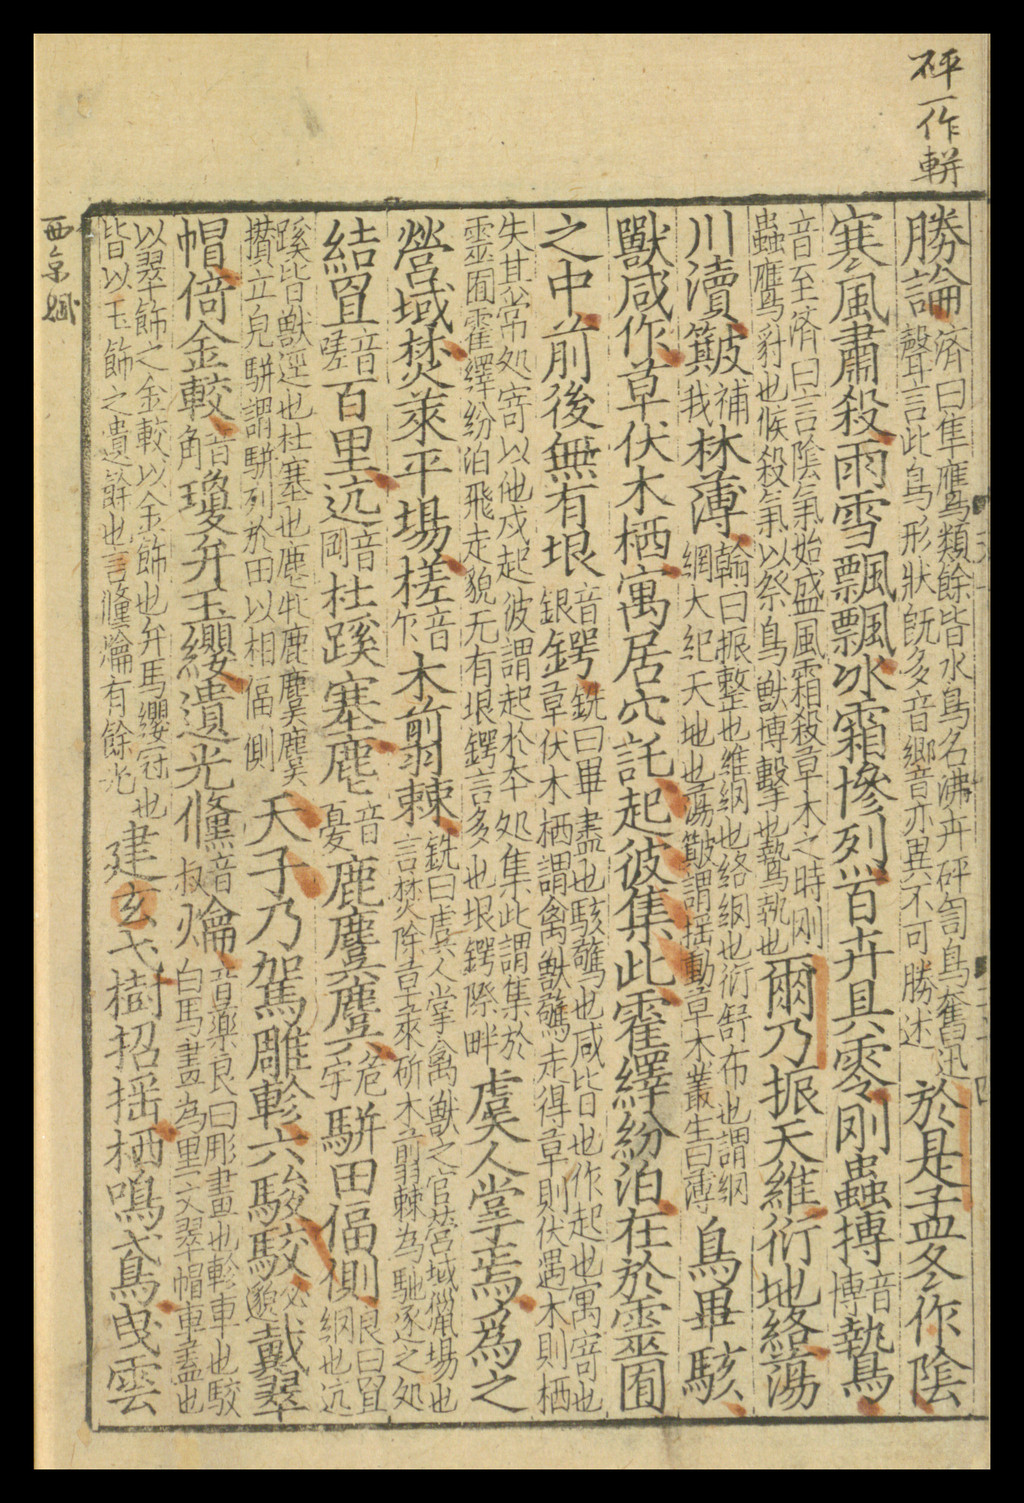 砰一作軿
勝論
濟曰隼鷹鸇類餘皆水鳥名沸卉砰訇鳥奮迅
聲言此鳥形狀既多音鄉音亦異不可勝述
於是孟冬作陰
寒風肅殺雨雪飄飄冰霜慘列百卉具零剛蟲搏
音
博
摯
音至濟曰言陰氣始盛風霜相殺草木之時剛
蟲鷹豺也候殺氣以祭鳥獸博擊也摯執也
爾乃振天維衍地絡蕩
川瀆簸
補
我
林薄
翰曰振整也維綱也絡網也衍舒布也謂網
網大紀天地也蕩簸謂揺動草木叢生曰薄
鳥畢駭
獸咸作草伏木栖寓居穴託起彼集此霍繹紛泊在於靈囿
之中前後無有垠
音
銀
鍔
銑曰畢盡也駭驚也咸皆也作起也寓寄也
草伏木栖謂禽獸驚走得草則伏遇木則栖
失其常処寄以他戍起彼謂起於本処集此謂集於
靈囿霍繹紛泊飛走貌无有垠鍔言多也垠鍔際畔
虞人掌焉為之
營域焚萊平場槎
音
乍
木翦棘
銑曰虞人掌禽獸之官營域場也
言焚除草萊斫木翦棘為馳逐之処
結罝
音
嗟
百里迒
音
岡
杜蹊塞麀
音
憂
鹿麌麌
危
宇
駢田偪側
良曰罝
網也迒
蹊皆獸逕也杜塞也麀牝鹿麌麌
攢立皃駢謂駢列於田以相偪側
天子乃駕雕軫六駿駮
必
邈
戴翠
帽倚金較
音
角
璿弁玉纓遺光儵
音
叔
爚
音藥良曰彫畫也軫車也駮
白馬畫為黑文翠帽車盖也
以翠飾之金較以金飾也弁馬纓冠也
皆以玉飾之遺餘也言儵爚有餘光
建玄弋樹招揺栖鳴鳶曳雲
西京賦